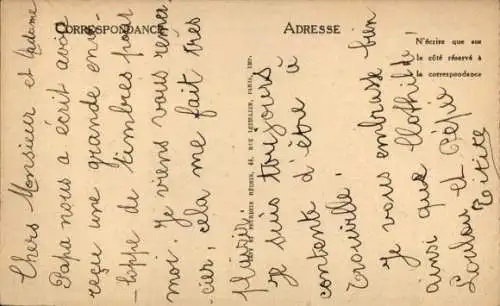 CORRESPONDANCE
ADRESSE
N'écrire que sur
le côté réservé à
la correspondance
Chers Monsieur et Madame
Papa nous a écrit avoir
reçu une grande env
-loppe de timbres pour
moi. Je viens vous remer
cier, cela me fait très
plaisir.
Je suis toujours
contente d'être à
Trouville.
Je vous embrasse bien
ainsi que Clothilde
Loulou et Pépée
Titite